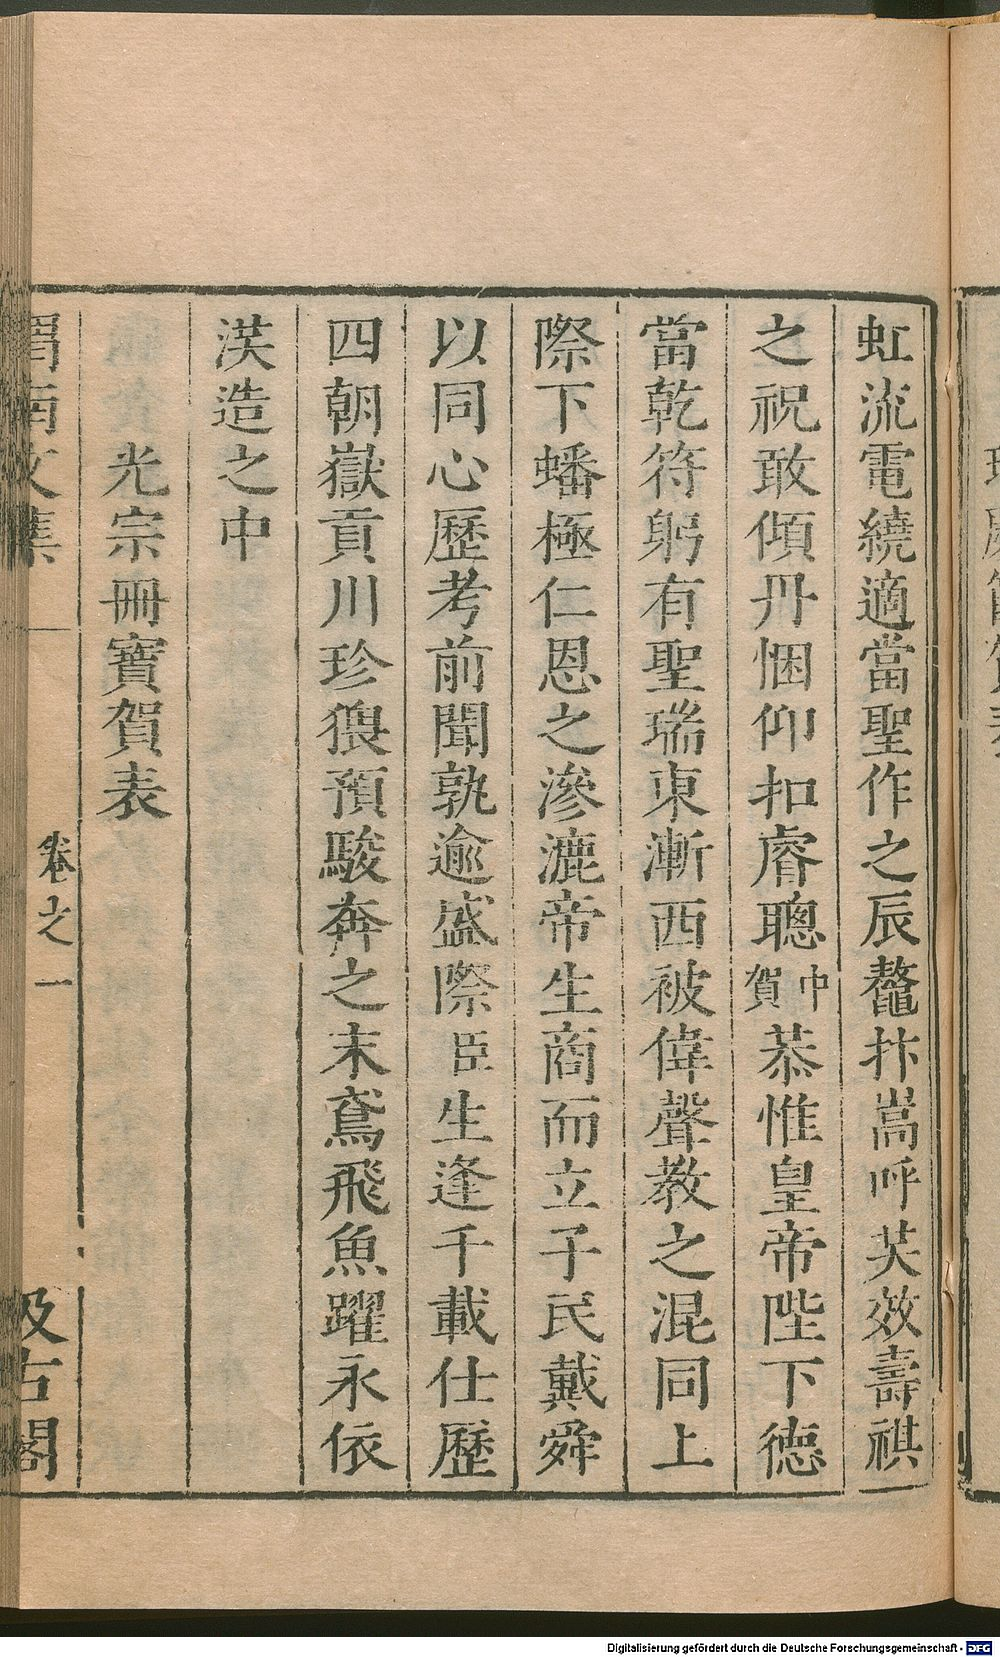 虹流電繞適當聖作之辰鼇抃嵩呼芺效壽祺
之祝敢傾丹悃仰扣睿聰中賀恭惟皇帝陛下德
當乾符躬有聖瑞東漸西被偉聲教之混同上
際下蟠極仁恩之滲漉帝生商而立子民戴舜
以同心歷考前聞孰逾盛際臣生逢千載仕歷
四朝嶽貢川珍猥預駿奔之末鳶飛魚躍永依
渶造之中
光宗冊寶賀表
渭南文集
卷之一
汲古閣
Digitalisierung gefördert durch die Deutsche Forschungsgemeinschaft - DFG